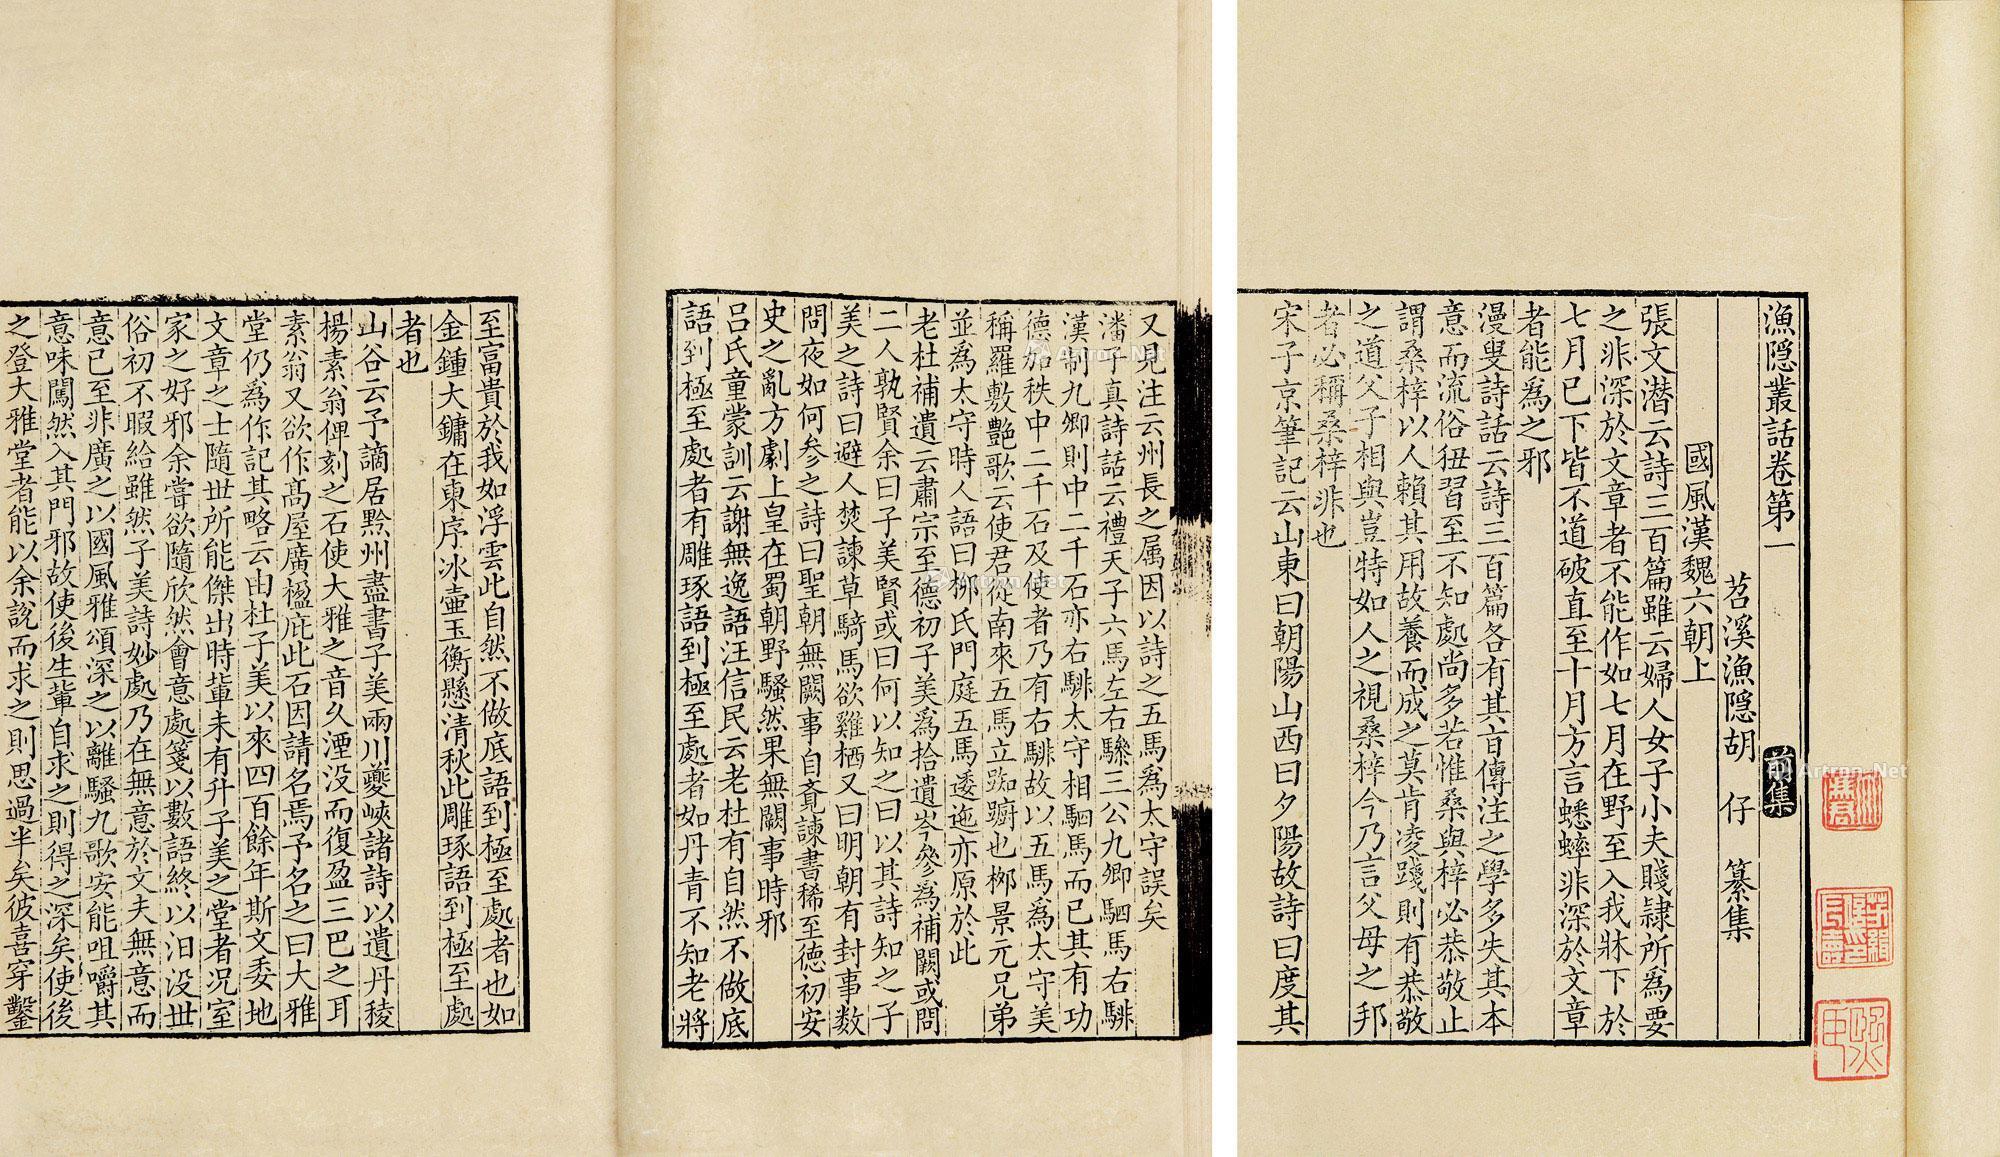 漁隠叢話卷第一 前集
苕溪漁隠胡 仔 纂集
國風漢魏六朝上
張文潜云詩三百篇雖云婦人女子小夫賤隷所為要
之非深於文章者不能作如七月在野至入我牀下於
七月已下皆不道破直至十月方言蟋蟀非深於文章
者能爲之邪
漫叟詩話云詩三百篇各有其㫖傳注之學多失其本
意而流俗狃習至不知處尚多若惟桑與梓必恭敬止
謂桑梓以人賴其用故養而成之莫肯凌踐則有恭敬
之道父子相與豈特如人之視桑梓今乃言父母之邦
者必稱桑梓非也
宋子京筆記云山東曰朝陽山西曰夕陽故詩曰度其
又見注云州長之属因以詩之五馬爲太守誤矣
潘子真詩話云禮天子六馬左右驂三公九卿駟馬右騑
漢制九卿則中二千石亦右騑太守相駟馬而已其有功
德加秩中二千石及使者乃有右騑故以五馬爲太守美
稱羅敷艶歌云使君從南來五馬立踟躕也栁景元兄弟
並爲太守時人語曰栁氏門庭五馬逶迤亦原於此
老杜補遺云肅宗至德初子美爲拾遺岑參為補闕或問
二人孰賢余曰子美賢或曰何以知之曰以其詩知之子
美之詩曰避人焚諫草騎馬欲雞栖又曰明朝有封事數
問夜如何参之詩曰聖朝無闕事自覔諫書稀至德初安
史之亂方劇上皇在蜀朝野騷然果無闕事時邪
吕氏童蒙訓云謝無逸語汪信民云老杜有自然不做底
語到極至處者有雕琢語到極至處者如丹青不知老將
至富貴於我如浮雲此自然不做底語到極至處者也如
金鍾大鏞在東序冰壷玉衡懸清秋此雕琢語到極至處
者也
山谷云予謫居黔州盡書子美兩川夔峽諸詩以遺丹稜
楊素翁俾刻之石使大雅之音久湮没而復盈三巴之耳
素翁又欲作髙屋廣楹庇此石因請名焉予名之曰大雅
堂仍爲作記其略云由杜子美以來四百餘年斯文委地
文章之士隨世所能傑出時軰未有升子美之堂者况室
家之好邪余嘗欲隨欣然會意處箋以數語終以汩没世
俗初不暇給雖然子美詩妙處乃在無意於文夫無意而
意已至非廣之以國風雅頌深之以離騷九歌安能咀嚼其
意味闖然入其門邪故使後生軰自求之則得之深矣使後
之登大雅堂者能以余説而求之則思過半矣彼喜穿鑿
Artron.Net
Artron.Net
Artron.Net